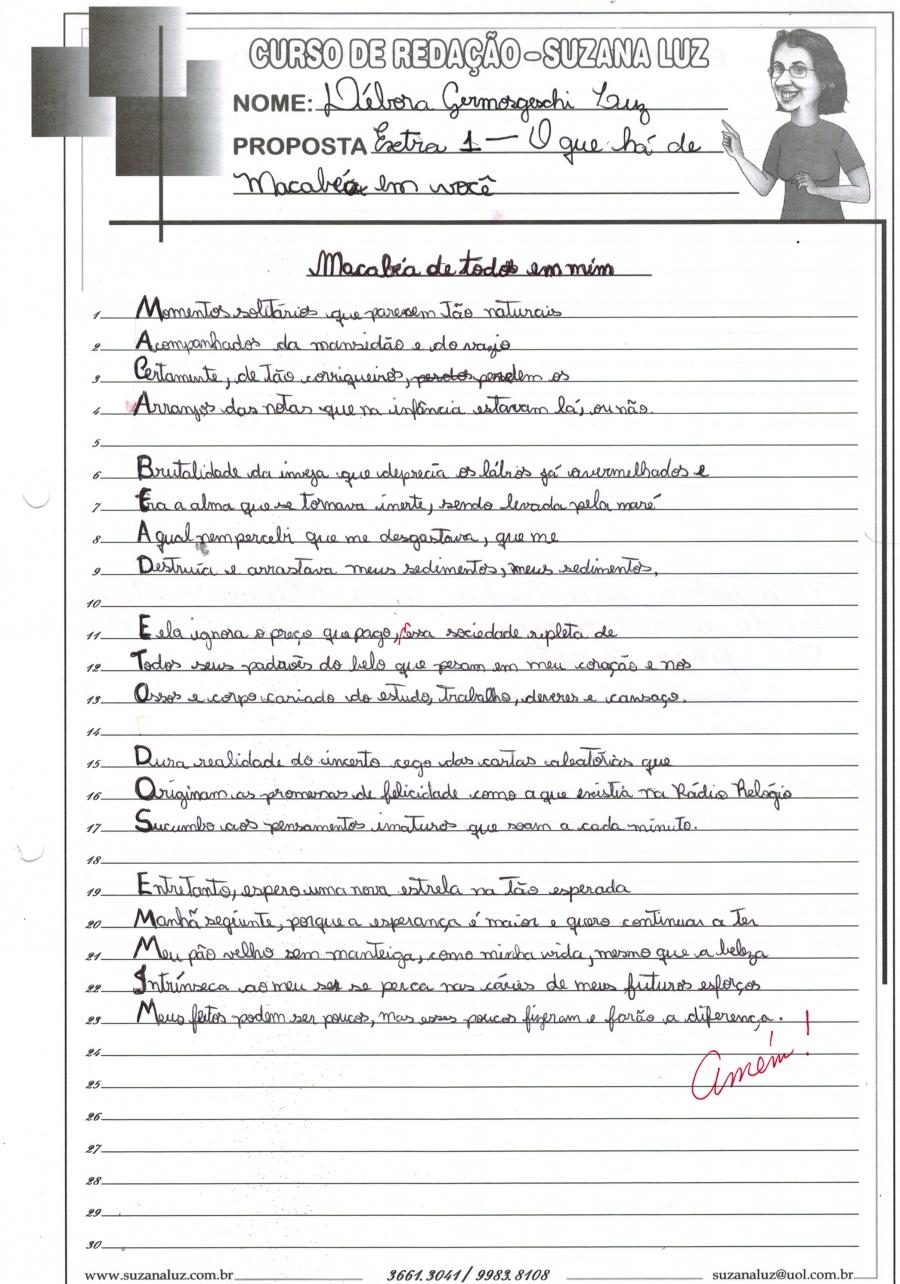 CURSO DE REDAÇÃO - SUZANA LUZ
NOME: Débora Germorgeschi Luz
PROPOSTA Extra 1 — O que há de
Macabéa em você
Macabéa de todos em mim
1 Momentos solitários que parecem tão naturais
2 Acompanhados da mansidão e do vazio
3 Certamente, de tão corriqueiros, perdem os
4 Arranjos das notas que na infância estavam lá, ou não.
5
6 Brutalidade da inveja que deprecia os lábios já avermelhados e
7 Era a alma que se tornava inerte, sendo levada pela maré
8 A qual nem percebi que me desgastava, que me
9 Destruía e arrastava meus sedimentos, meus sedimentos.
10
11 E ela ignora o preço que pago, essa sociedade repleta de
12 Todos seus padrões do belo que pesam em meu coração e nos
13 Ossos e corpo cariado do estudo, trabalho, deveres e cansaço.
14
15 Dura realidade do incerto cego das cartas aleatórias que
16 Originam as promessas de felicidade como a que existia na Rádio Relógio
17 Sucumbo aos pensamentos imaturos que soam a cada minuto.
18
19 Entretanto, espero uma nova estrela na tão esperada
20 Manhã seguinte, porque a esperança é maior e quero continuar a ter
21 Meu pão velho sem manteiga, como minha vida, mesmo que a beleza
22 Intrínseca ao meu ser se perca nas cáries de meus futuros esforços
23 Meus feitos podem ser poucos, mas esses poucos fizeram e farão a diferença.
24
Amém!
25
26
27
28
29
30
www.suzanaluz.com.br 3661.3041 / 9983.8108 suzanaluz@uol.com.br